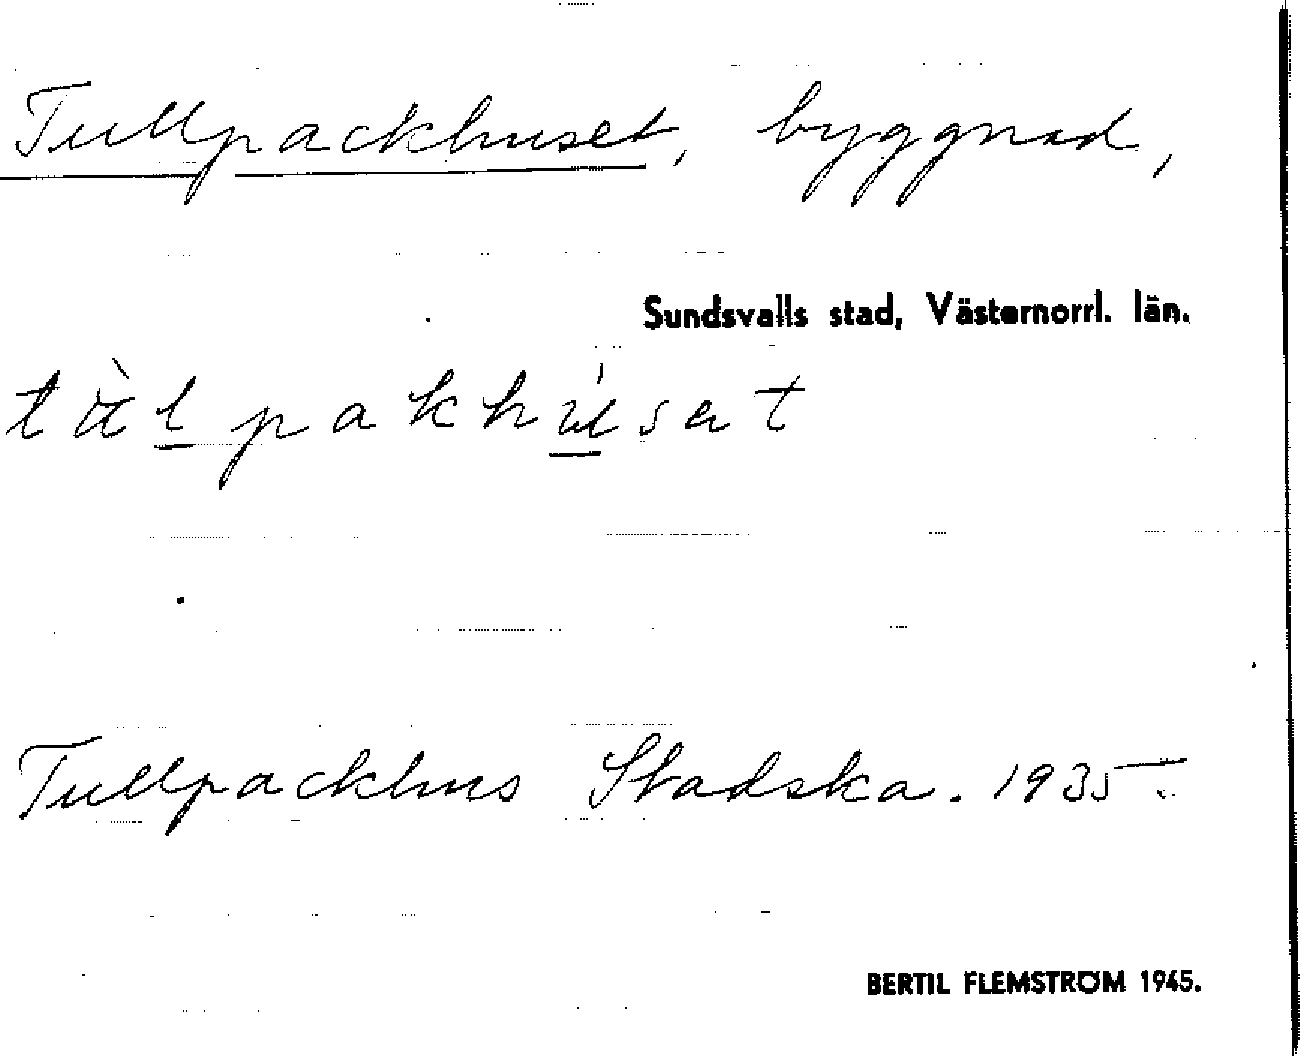 Tullpackhuset, byggnad,
Sundsvalls stad, Västernorrl. län.
Tullpackhus Stadska. 1935
BERTIL FLEMSTRÖM 1945.